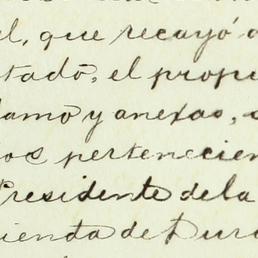 el, que recayó a
tado, el prop
lamo y anexas,
os pertenecien
Presidente de la
ienda de Dura